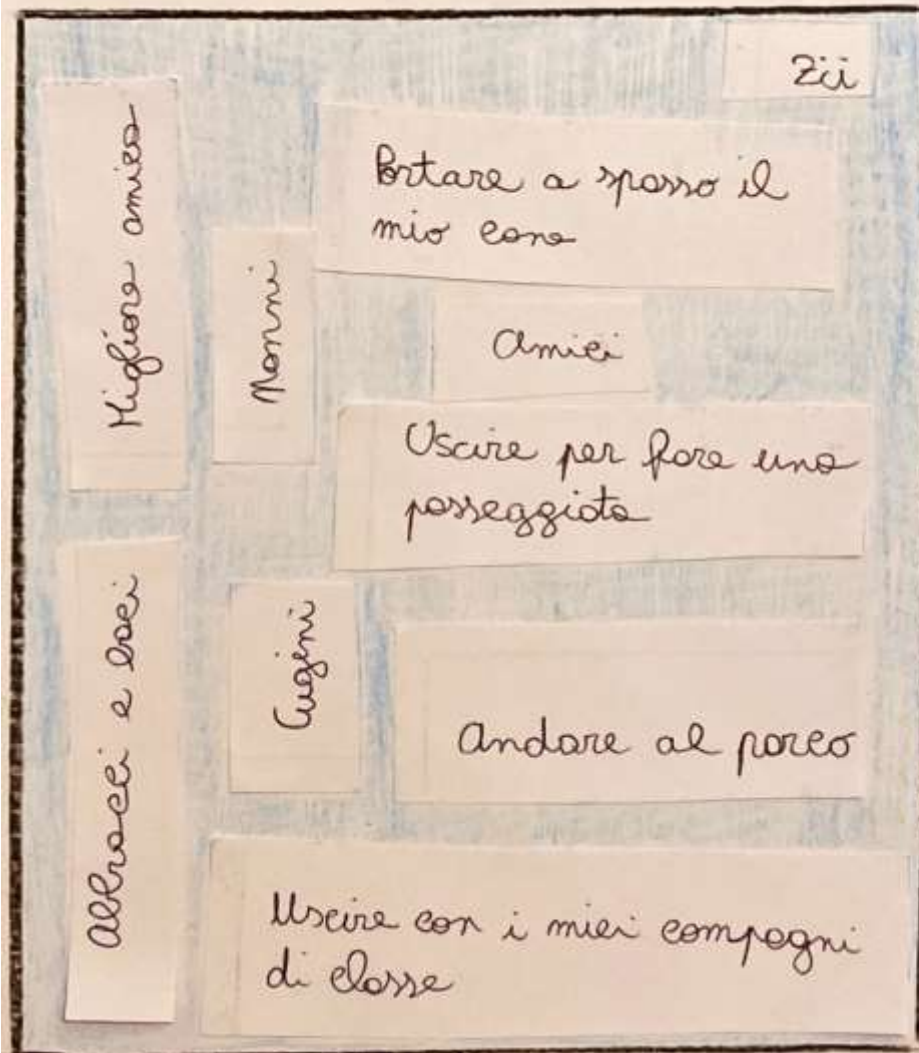 Zii
Migliore amica
Portare a spasso il
mio cane
Nonni
Amici
Uscire per fare una
passeggiata
Abbracci e baci
Cugini
Andare al parco
Uscire con i miei compagni
di classe